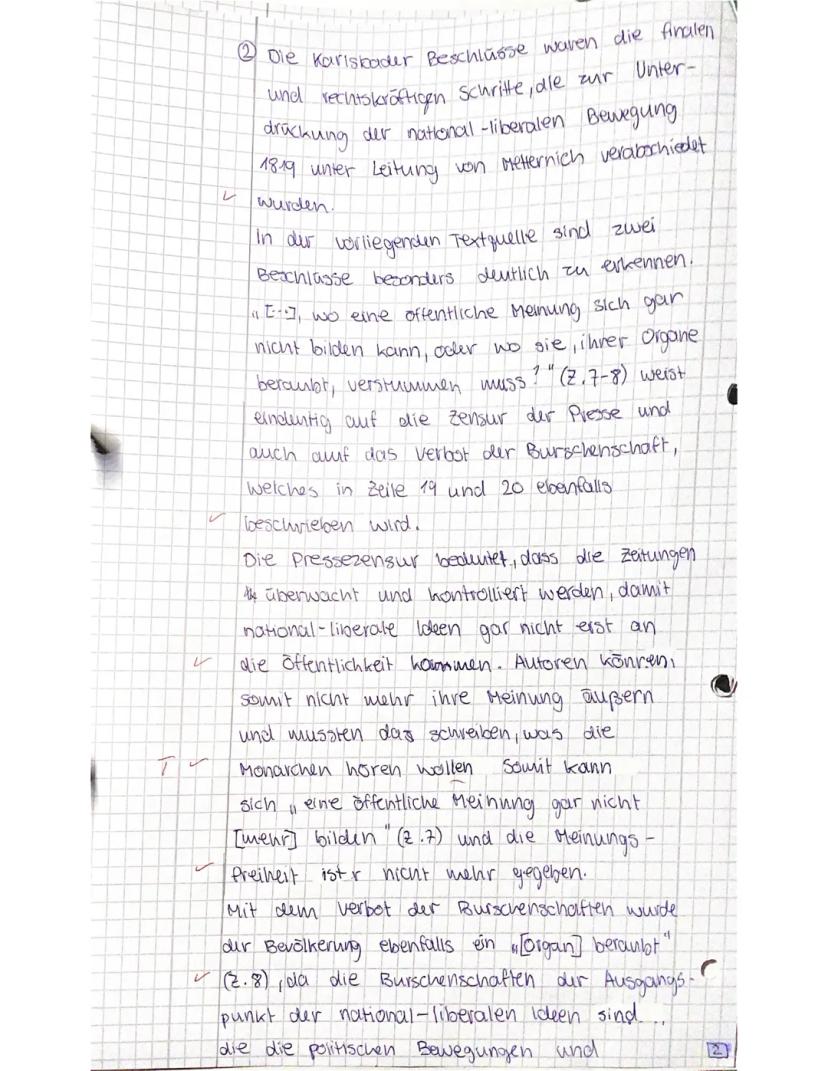 ② Die Karlsbader Beschlüsse waren die finalen
und rechtskräftigen Schritte, die zur Unter-
drückung der national-liberalen Bewegung
1819 unter Leitung von Metternich verabschiedet
wurden.
In der vorliegenden Textquelle sind zwei
Beschlüsse besonders deutlich zu erkennen.
„[...], wo eine öffentliche Meinung sich gar
nicht bilden kann, oder wo sie, ihrer Organe
beraubt, verstummen muss?" (Z. 7-8) weist
eindeutig auf die Zensur der Presse und
auch auf das Verbot der Burschenschaft,
welches in Zeile 19 und 20 ebenfalls
beschrieben wird.
Die Pressezensur bedeutet, dass die Zeitungen
überwacht und kontrolliert werden, damit
national-liberale Ideen gar nicht erst an
die Öffentlichkeit kommen. Autoren können
somit nicht mehr ihre Meinung äußern
und mussten das schreiben, was die
T Monarchen hören wollen Somit kann
sich „eine öffentliche Meinung gar nicht
[mehr] bilden" (Z. 7) und die Meinungs-
freiheit ist nicht mehr gegeben.
Mit dem Verbot der Burschenschaften wurde
der Bevölkerung ebenfalls ein „[Organ] beraubt"
(Z. 8), da die Burschenschaften der Ausgangs-
punkt der national-liberalen Ideen sind
die die politischen Bewegungen und
2